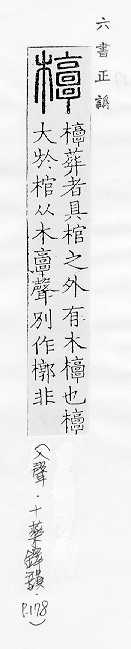 六書正譌
𣠖
𣠖葬者具棺之外有木𣠖也𣠖
大於棺从木𩫏聲別作槨非
(入聲．十藥鐸韻．P.178)